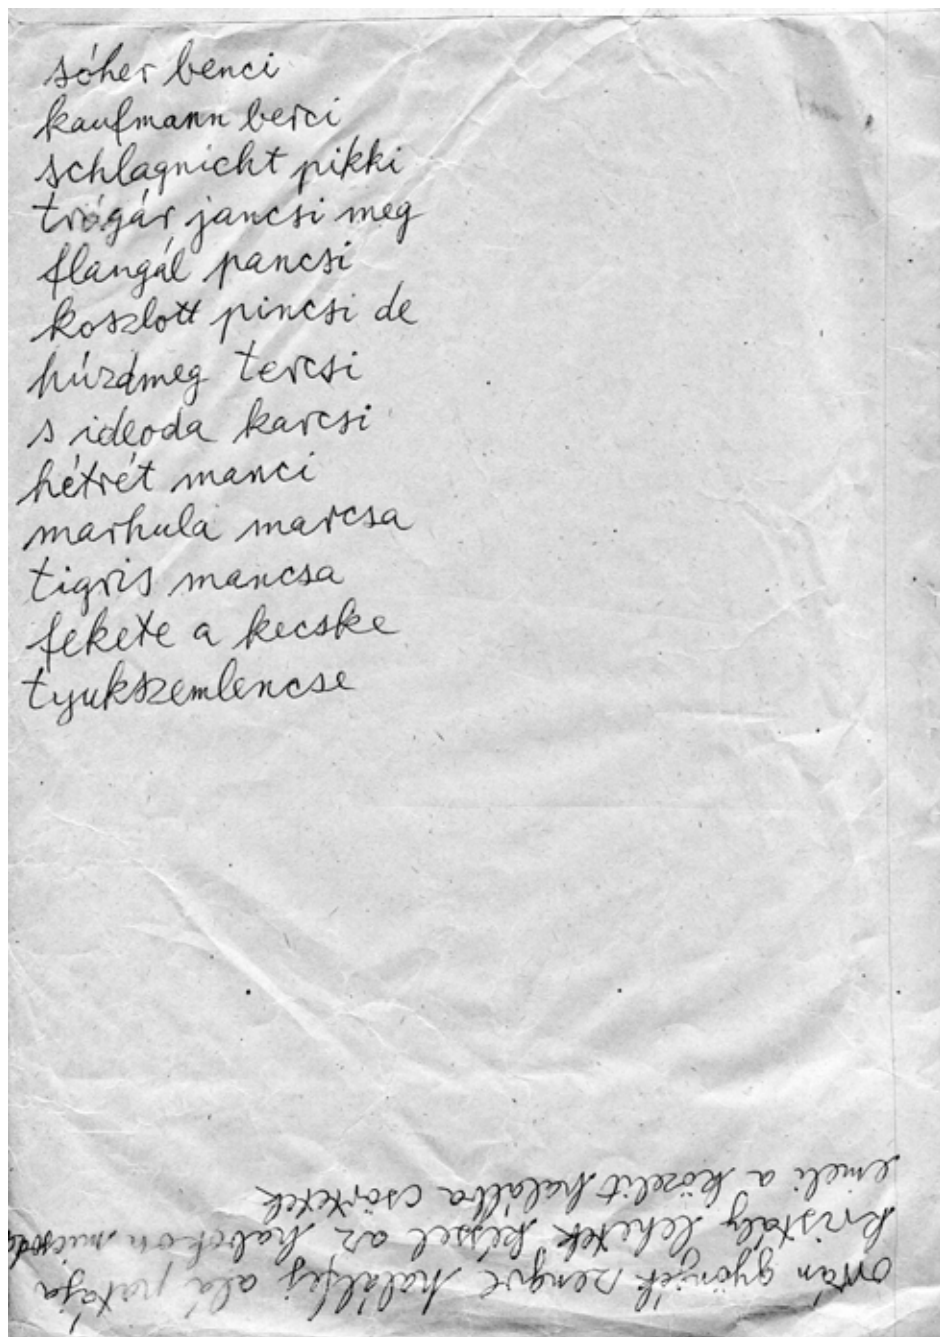 sóher benci
kaufmann berci
schlagnicht pikki
trógár jancsi meg
flangál pancsi
koszlott pincsi de
húzdmeg tercsi
s ideoda karcsi
hétrét manci
marhula marcsa
tigris mancsa
fekete a kecske
tyukszemlencse
orrán gyöngék zengve halálfej alá patája
kristály lehetek késsel az habokon
emeli a közelit halálba csörtetek